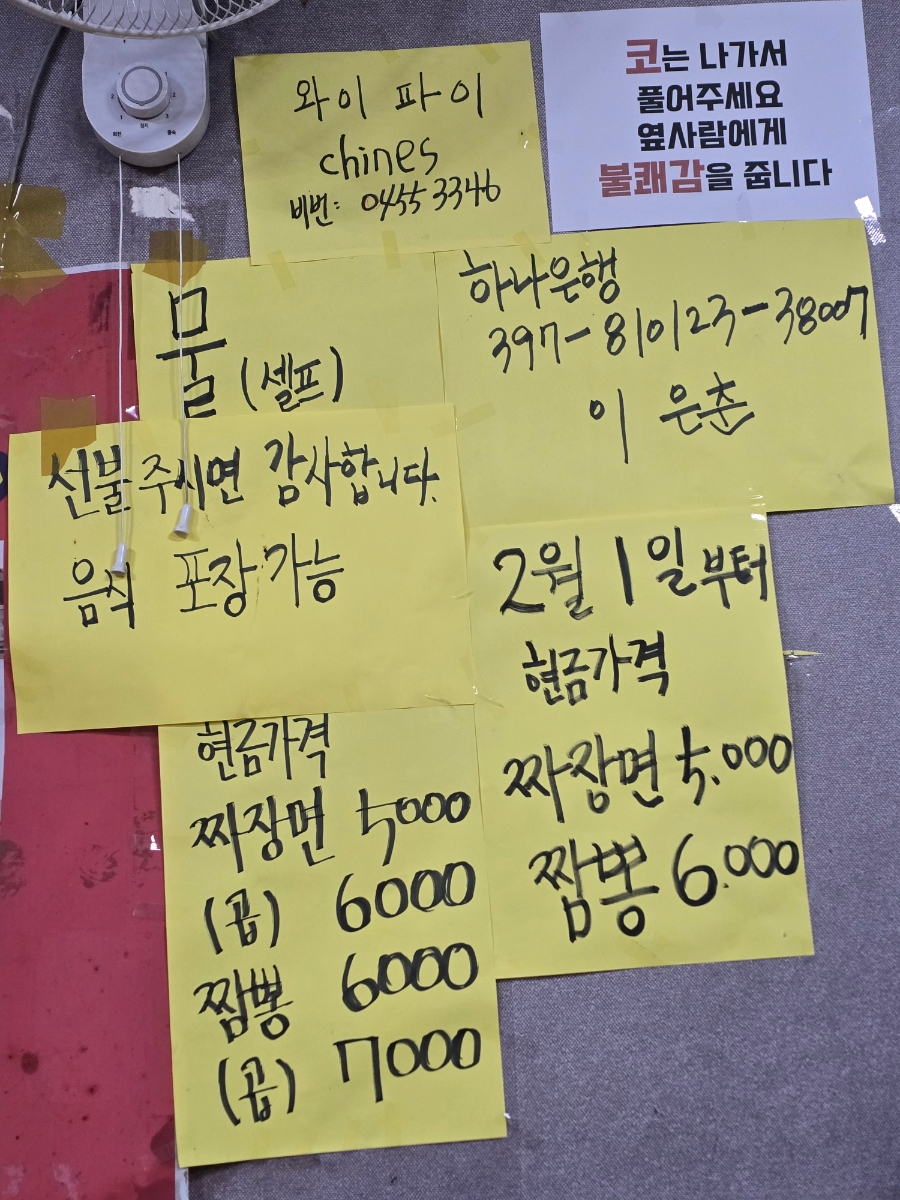 와이파이
chines
비번: 0455 3346
코는 나가서
풀어주세요
옆사람에게
불쾌감을 줍니다
물 (셀프)
하나은행
397-810123-38007
이 은춘
선불 주시면 감사합니다.
음식 포장 가능
2월 1일부터
현금가격
짜장면 5.000
짬뽕 6.000
현금가격
짜장면 5000
(곱) 6000
짬뽕 6000
(곱) 7000